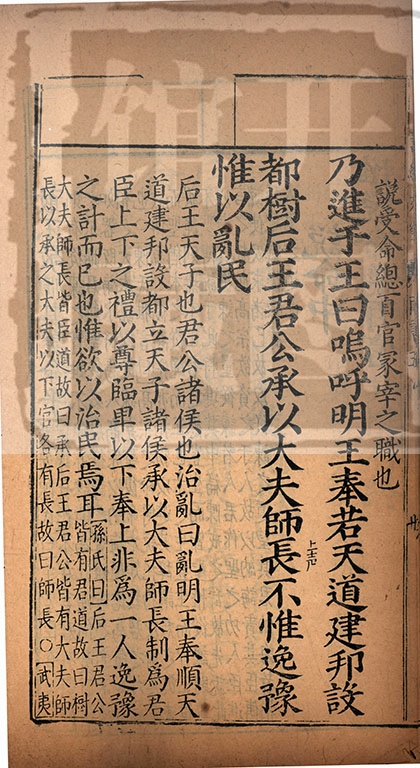 說受命總百官冢宰之職也
乃進于王曰嗚呼明王奉若天道建邦設
都樹后王君公承以大夫師長不惟逸豫
惟以亂民
后王天子也君公諸侯也治亂曰亂明王奉順天
道建邦設都立天子諸侯承以大夫師長制爲君
臣上下之禮以尊臨卑以下奉上非爲一人逸豫
之計而已也惟欲以治民焉耳孫氏曰后王君公
皆有君道故曰樹
大夫師長皆臣道故曰承后王君公皆有大夫師
長以承之大夫以下官各有長故曰師長○武夷